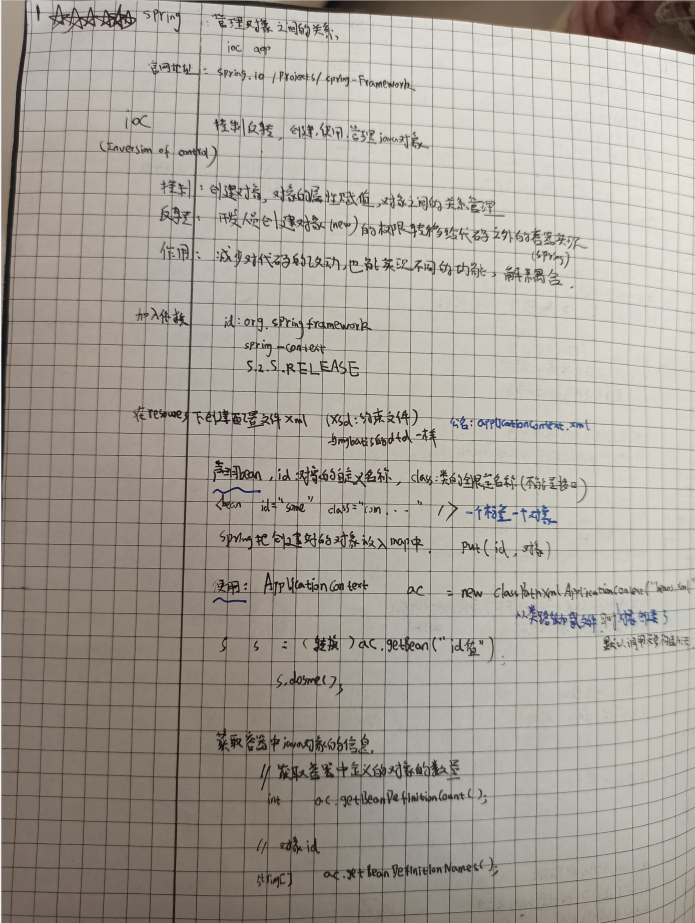 1 spring : 管理对象之间的关系,
ioc aop
官网地址 : spring.io /projects/ spring-Framework
ioc 控制反转, 创建.使用.管理java对象
(Inversion of control)
控制 : 创建对象, 对象的属性赋值, 对象之间的关系管理
反转 : 开发人员创建对象(new)的权限转移给代码之外的容器实现
(spring)
作用 : 减少对代码的改动, 也能实现不同的功能, 解耦合.
加入依赖 id: org.springframework
spring-context
5.2.5.RELEASE
在resources下创建配置文件xml (xsd:约束文件) 公名: applicationContext.xml
与mybatis的dtd一样
声明bean, id:对象的自定义名称, class:类的全限定名称(不能是接口)
<bean id="some" class="com. ..." /> 一个标签一个对象
spring把创建好的对象放入map中. put(id, 对象)
使用: ApplicationContext ac = new ClassPathXmlApplicationContext("beans.xml"
从类路径加载文件 对象创建了
S s = (转换) ac.getBean("id值");
s.dosme();
获取容器中java对象的信息.
// 获取容器中定义的对象的数量
int ac.getBeanDefinitionCount();
// 对象id
string[] ac.getBeanDefinitionNames();